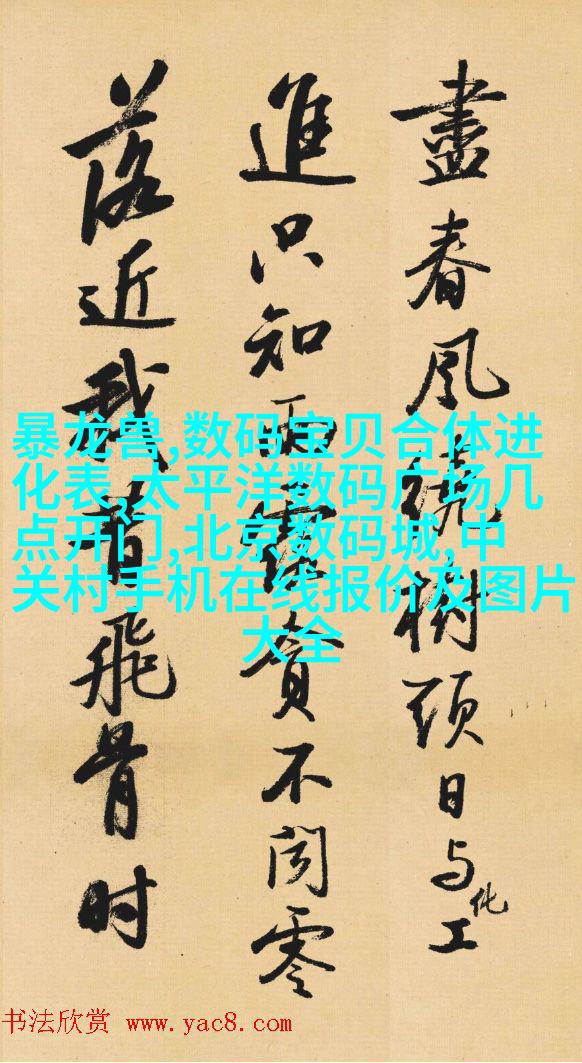 盡春風繞樹頭日与化工
進只知雨露貪不聞零
落近我昔飛骨时
暴龙兽,数码宝贝合体进
化表,太平洋数码广场几
点开门,北京数码城,中
关村手机在线报价及图片
大全
书法欣赏 www.yac8.com